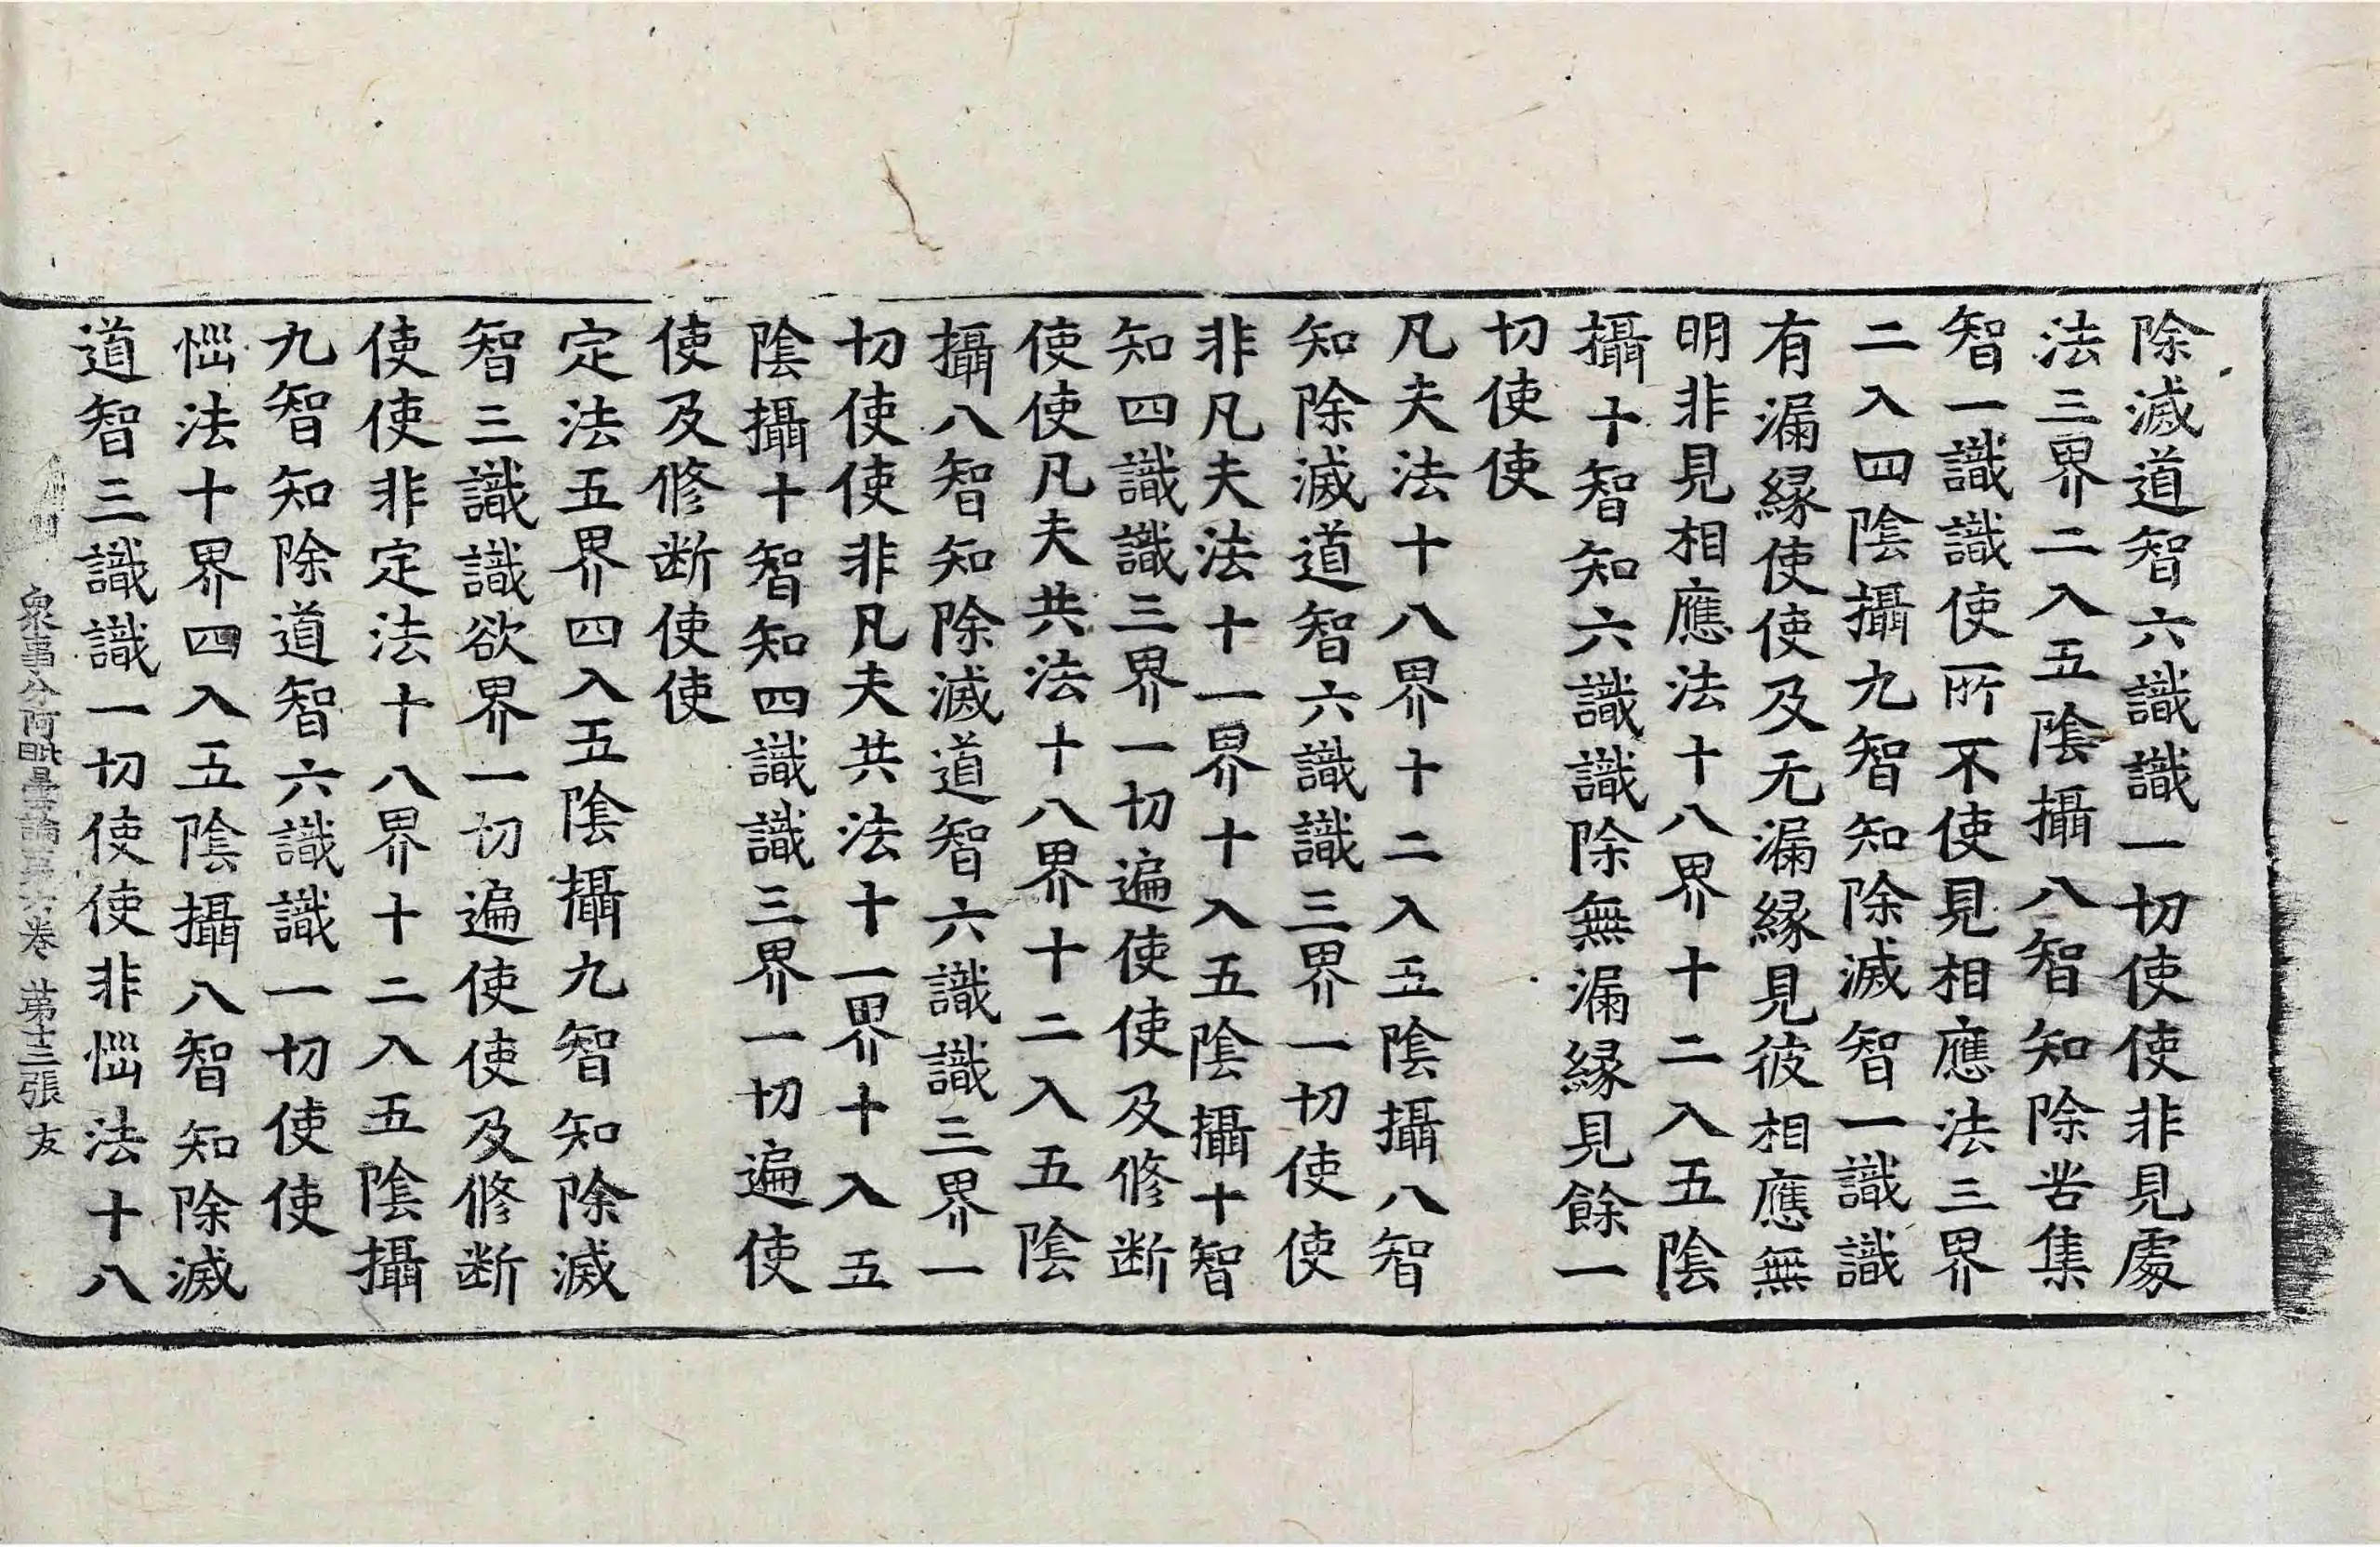 除滅道智六識識一切使使非見處
法三界二入五陰攝八智知除苦集
智一識識使所不使見相應法三界
二入四陰攝九智知除滅智一識識
有漏縁使使及无漏縁見彼相應無
明非見相應法十八界十二入五陰
攝十智知六識識除無漏縁見餘一
切使使
凡夫法十八界十二入五陰攝八智
知除滅道智六識識三界一切使使
非凡夫法十一界十入五陰攝十智
知四識識三界一切遍使使及修断
使使凡夫共法十八界十二入五陰
攝八智知除滅道智六識識三界一
切使使非凡夫共法十一界十入五
陰攝十智知四識識三界一切遍使
使及修断使使
定法五界四入五陰攝九智知除滅
智三識識欲界一切遍使使及修断
使使非定法十八界十二入五陰攝
九智知除道智六識識一切使使
惱法十界四入五陰攝八智知除滅
道智三識識一切使使非惱法十八
衆事分阿毗曇論第六卷 第十三張 友